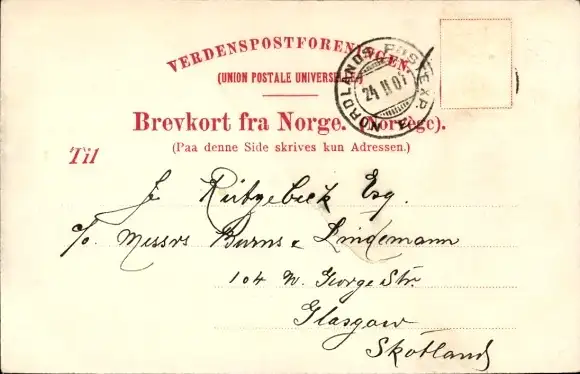 VERDENSPOSTFORENINGEN.
(UNION POSTALE UNIVERSELLE)
NORDLANDS POSTEXP. 24 II 07
Brevkort fra Norge. (Norvège).
(Paa denne Side skrives kun Adressen.)
Til
J. Rütgebeck Esq.
c/o. Messrs Burns & Lindemann
104 W. George Str.
Glasgow
Skotland